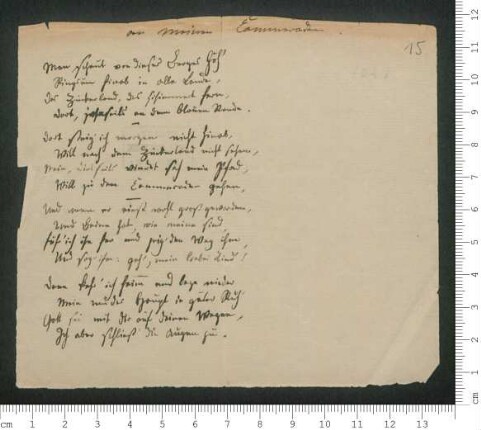 an meinen Cammeraden.
15
Man schaut von dieses Berges Höh'
Ringsum hinab in alle Lande,
das Zauberland, das schimmert fern,
dort, jenseits an dem blauen Rande.
dort steig ich morgen nicht hinab,
Will nach dem Zauberland nicht sehen,
Nein, diesseits windet sich mein Pfad,
Will zu dem Cammeraden gehen,
Und wenn er einst wohl groß geworden,
Und Beine hat, wie meine sind,
führ' ich ihn her und zeig' den Weg ihm,
Und sag' ihm: geh', mein liebes Kind!
Dann kehr' ich heim und lege nieder
Mein müdes Haupt in guter Ruh'
Gott sei mit dir auf deinen Wegen,
Ich aber schließ' die Augen zu.
cm 1 2 3 4 5 6 7 8 9 10 11 12 13
cm 1 2 3 4 5 6 7 8 9 10 11 12